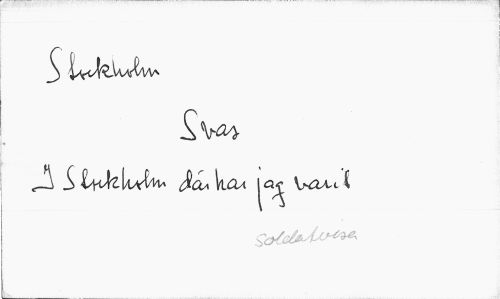 Stockholm
Svas
I Stockholm där har jag varit
Soldatvisa